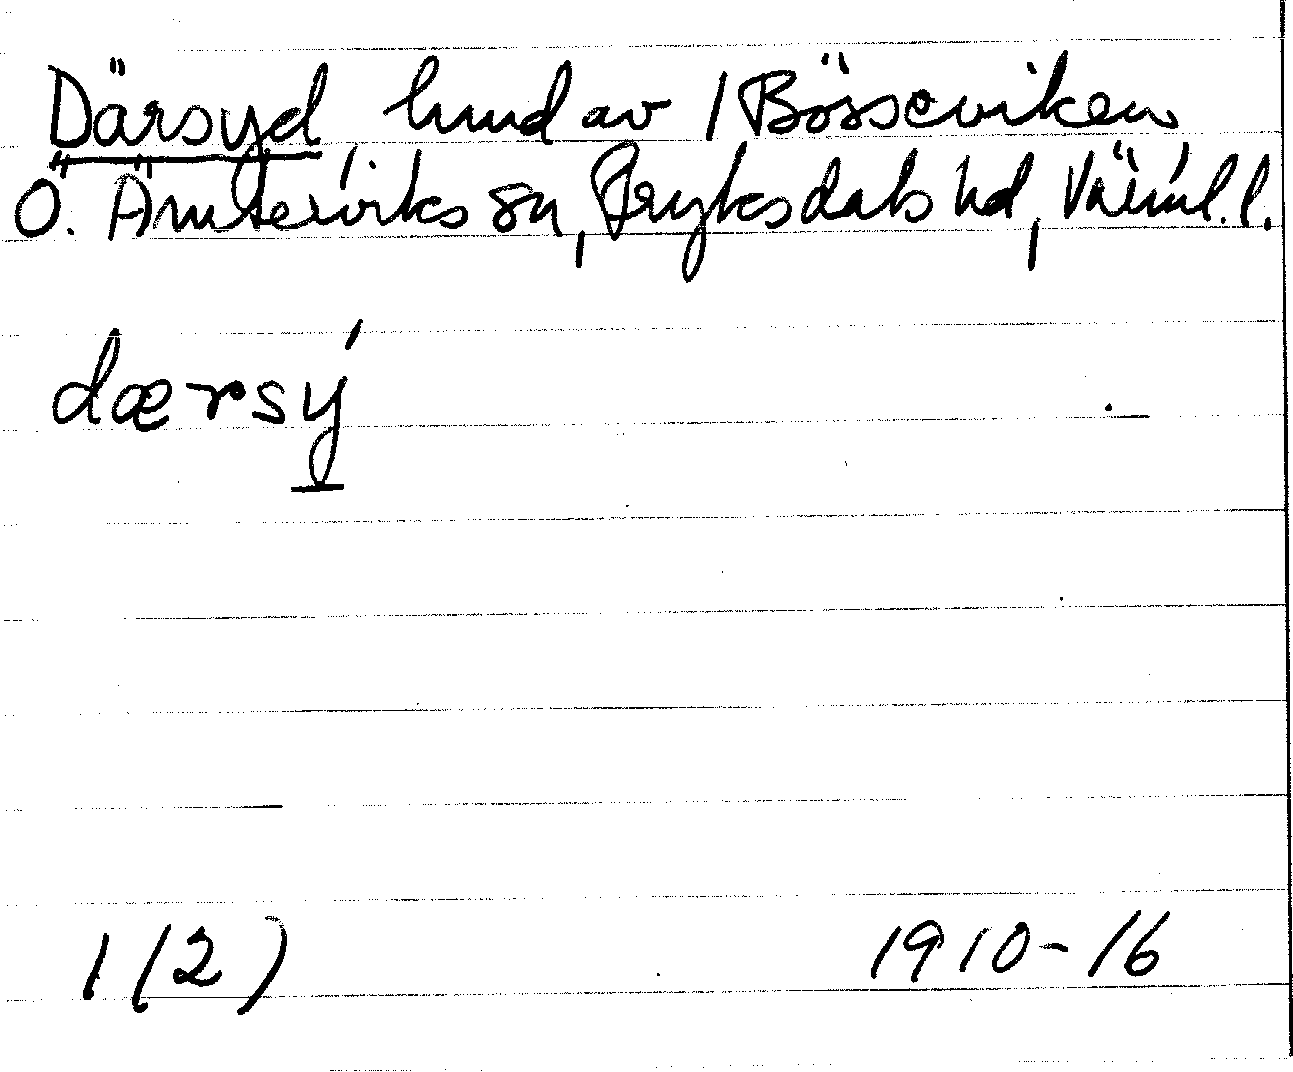 Därsyd hmd av 1 Bösseviken
Ö. Ämterviks sn, Fryksdals hd, Värml. l.
dærsý
1 (2) 1910-16